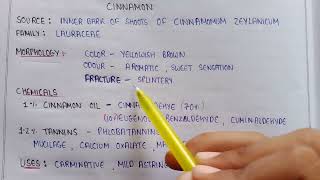 CINNAMON
SOURCE : INNER BARK OF SHOOTS OF CINNAMOMUM ZEYLANICUM
FAMILY : LAURACEAE
MORPHOLOGY : COLOR - YELLOWISH BROWN
ODOUR - AROMATIC, SWEET SENSATION
FRACTURE - SPLINTERY
CHEMICALS
1% CINNAMON OIL - (70%)
EUGENOL, BENZALDEHYDE, CUMINALDEHYDE
1-2% TANNINS - PHLOBATANNINS
MUCILAGE, CALCIUM OXALATE,
USES : CARMINATIVE, MILD